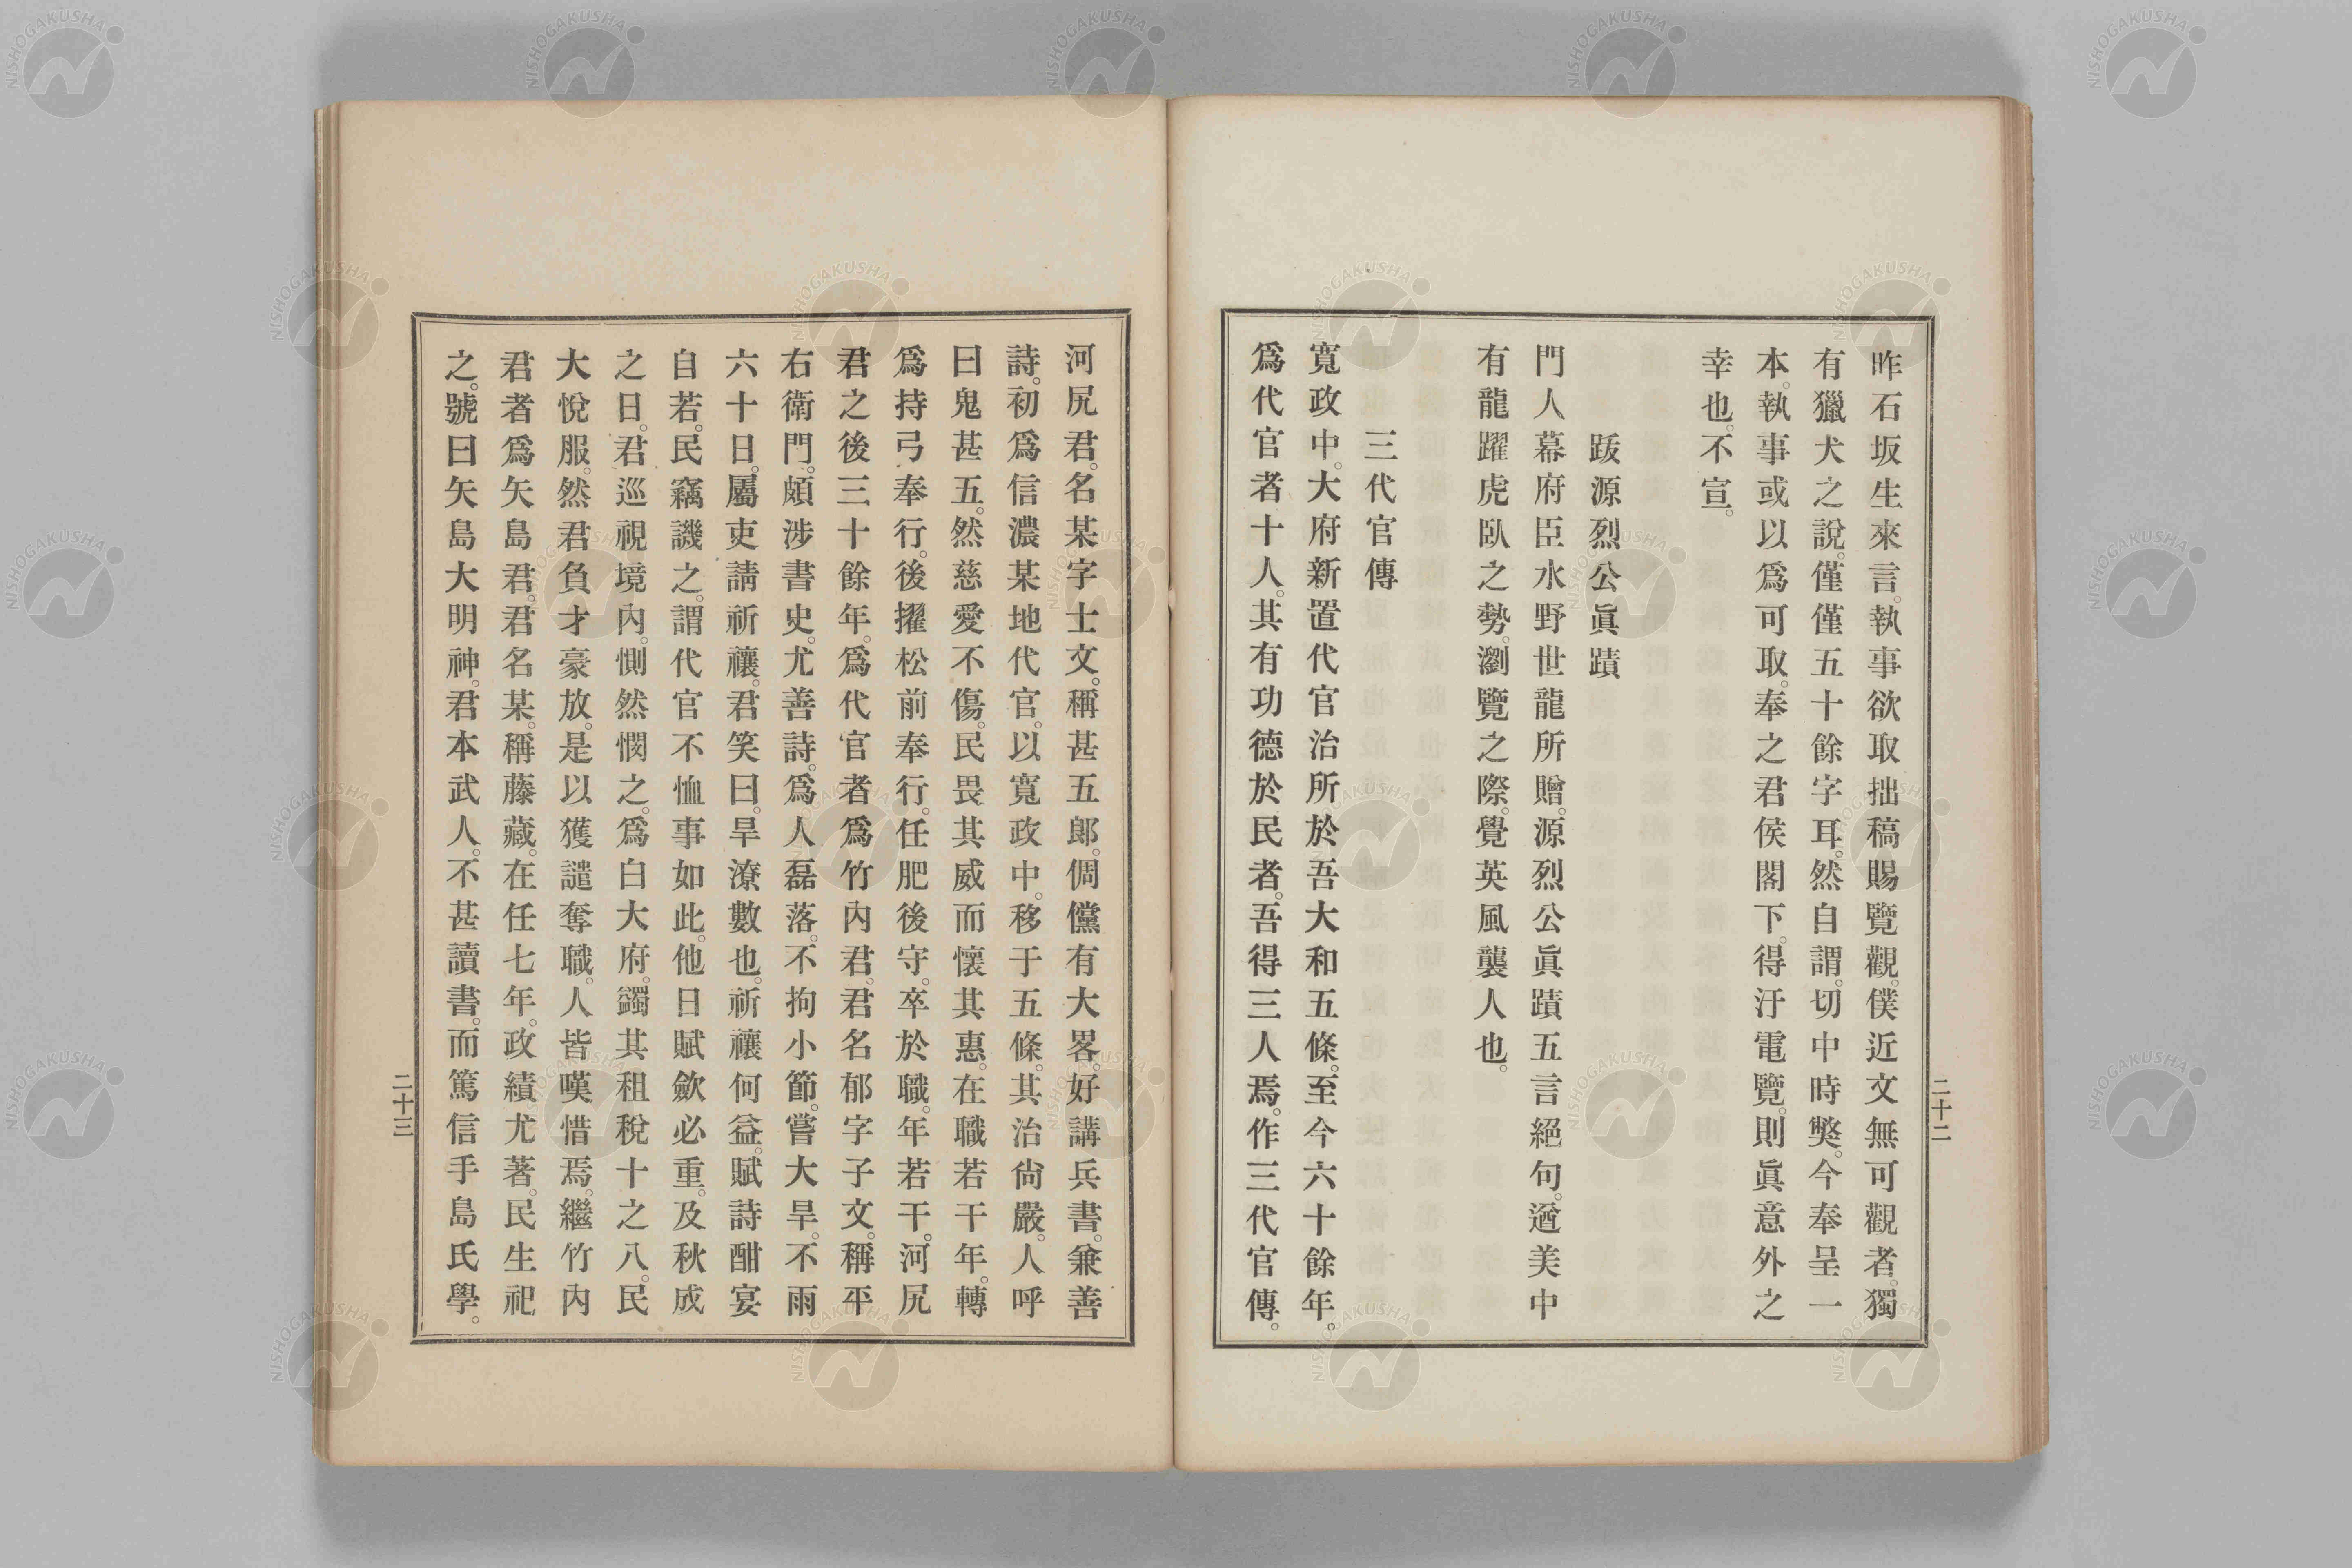 昨石坂生來言。執事欲取拙稿賜覽觀。僕近文無可觀者。獨
有獵犬之說。僅僅五十餘字耳。然自謂。切中時獘。今奉呈一
本。執事或以爲可取。奉之君侯閣下。得汙電覽。則眞意外之
幸也。不宣。
跋源烈公眞蹟
門人幕府臣水野世龍所贈。源烈公眞蹟五言絕句。遒美中
有龍躍虎臥之勢。瀏覽之際。覺英風襲人也。
三代官傳
寬政中。大府新置代官治所於吾大和五條。至今六十餘年。
爲代官者十人。其有功德於民者。吾得三人焉。作三代官傳。
二十二
河尻君。名某字士文。稱甚五郞。倜儻有大畧。好講兵書。兼善
詩。初爲信濃某地代官。以寬政中。移于五條。其治尙嚴。人呼
曰鬼甚五。然慈愛不傷。民畏其威而懷其惠。在職若干年。轉
爲持弓奉行。後擢松前奉行。任肥後守。卒於職。年若干。河尻
君之後三十餘年。爲代官者爲竹內君。君名郁字子文。稱平
右衛門。頗涉書史。尤善詩。爲人磊落。不拘小節。嘗大旱。不雨
六十日。屬吏請祈禳。君笑曰。旱潦數也。祈禳何益。賦詩酣宴
自若。民竊譏之。謂代官不恤事如此。他日賦斂必重。及秋成
之日。君巡視境內。惻然憫之。爲白大府。蠲其租稅十之八。民
大悅服。然君負才豪放。是以獲譴奪職。人皆嘆惜焉。繼竹內
君者爲矢島君。君名某。稱藤藏。在任七年。政績尤著。民生祀
之。號曰矢島大明神。君本武人。不甚讀書。而篤信手島氏學。
二十三
NISHOGAKUSHA